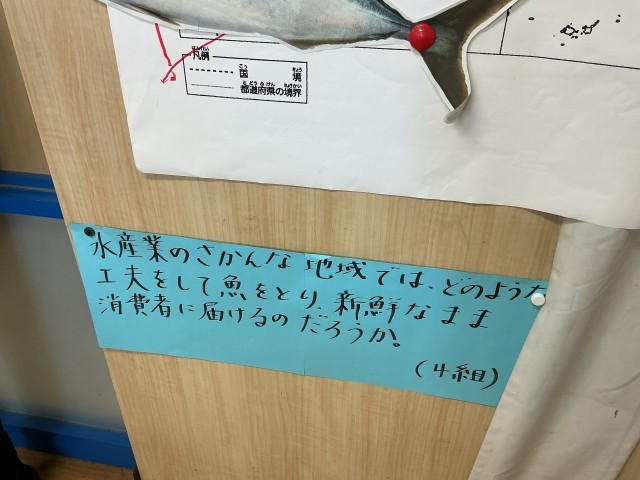 凡例
国境
都道府県の境界
水産業のさかんな地域では、どのような
工夫をして魚をとり、新鮮なまま
消費者に届けるのだろうか。
(4組)